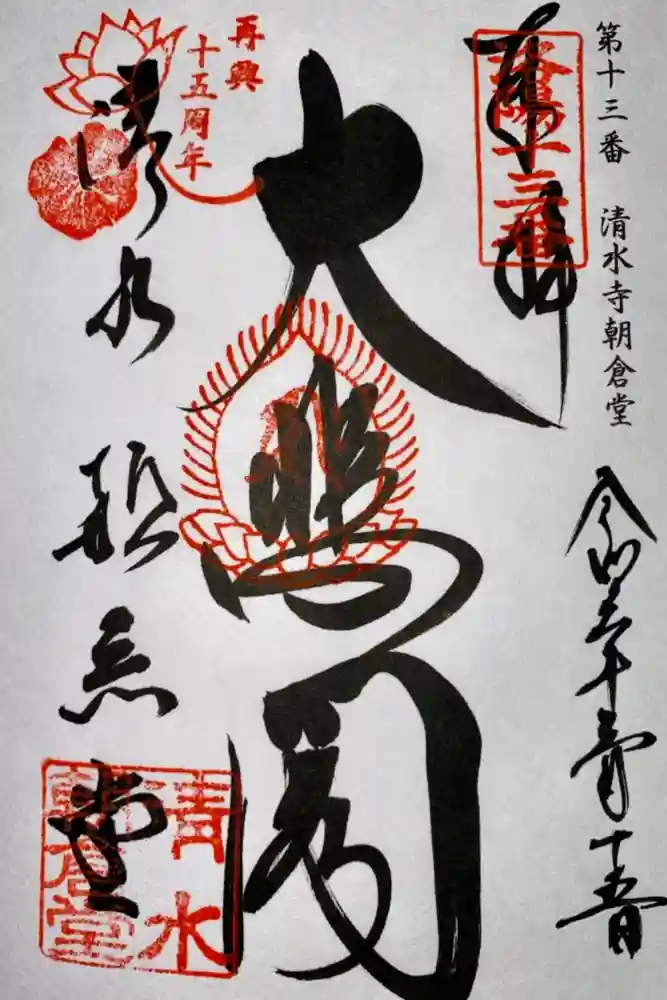 第十三番　清水寺朝倉堂
奉拝
洛陽十三番
令和
十五日
大悲閣
再興
十五周年
清水
朝倉堂
清水
朝倉堂